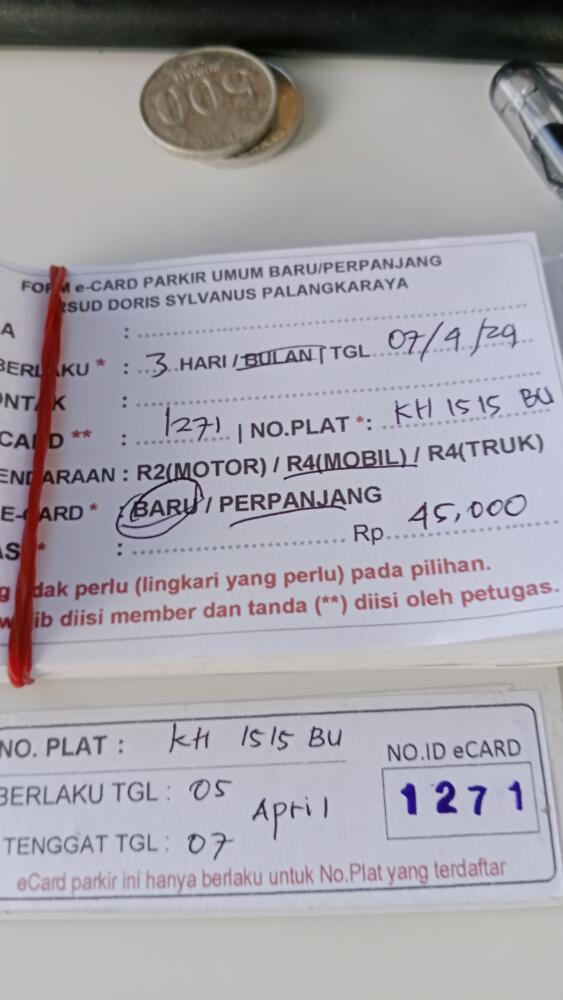 500
FORM e-CARD PARKIR UMUM BARU/PERPANJANG
RSUD DORIS SYLVANUS PALANGKARAYA
A :
BERLAKU * : 3 HARI / BULAN | TGL 07/4/24
ONTAK :
CARD ** : 1271 | NO.PLAT *: KH 1515 BU
ENDARAAN : R2(MOTOR) / R4(MOBIL) / R4(TRUK)
E-CARD * : BARU / PERPANJANG
AS * : Rp 45,000
g tidak perlu (lingkari yang perlu) pada pilihan.
wajib diisi member dan tanda (**) diisi oleh petugas.
NO. PLAT : KH 1515 BU
NO.ID eCARD
BERLAKU TGL : 05 April
1271
TENGGAT TGL : 07
eCard parkir ini hanya berlaku untuk No.Plat yang terdaftar